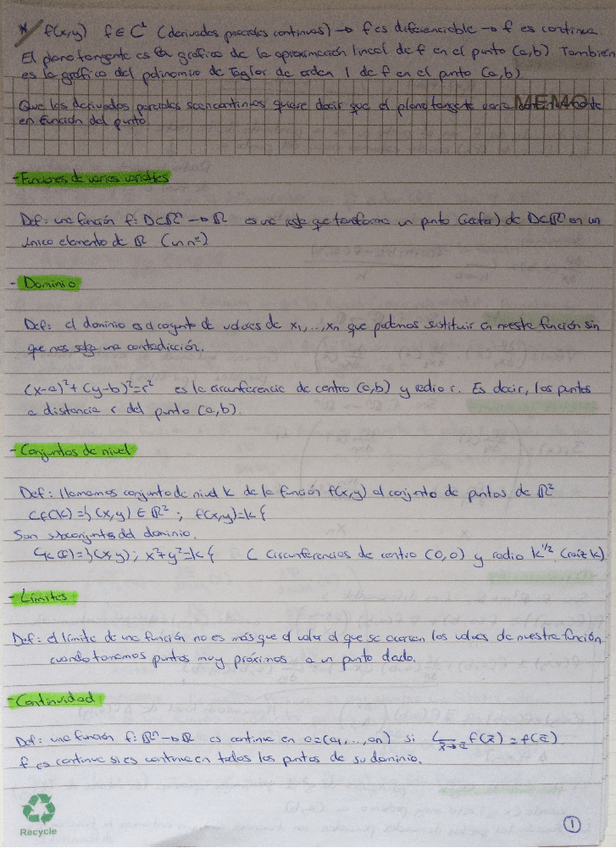 * f(x,y) f ∈ C¹ (derivadas parciales continuas) → f es diferenciable → f es continua
El plano tangente es la gráfica de la aproximación lineal de f en el punto (a,b) También
es la gráfico del polinomio de Taylor de orden 1 de f en el punto (a,b)
Que las derivadas parciales sean continuas quiere decir que el plano tangente varia
MEMO
en función del punto.
- Funciones de varias variables
Def: una función f: D⊂ℝⁿ → ℝ es una regla que transforma un punto (vector) de D⊂ℝⁿ en un
único elemento de ℝ (un nº)
- Dominio
Def: el dominio es el conjunto de valores de x₁,...,xn que podemos sustituir en nuestra función sin
que nos salga una contradicción.
(x-a)²+(y-b)²=r² es la circunferencia de centro (a,b) y radio r. Es decir, los puntos
a distancia r del punto (a,b).
- Conjuntos de nivel
Def: llamamos conjunto de nivel k de la función f(x,y) al conjunto de puntos de ℝ²
Cf(k)={(x,y) ∈ ℝ² ; f(x,y)=k}
Son subconjuntos del dominio.
Ck(f)={(x,y); x²+y²=k} ( Circunferencias de centro (0,0) y radio k^1/2 (raíz k)
- Límites
Def: el límite de una función no es más que el valor al que se acercan los valores de nuestra función
cuando tomamos puntos muy próximos a un punto dado.
- Continuidad
Def: una función f: ℝⁿ → ℝ es continua en a=(a₁,...,an) si L x̄→ā f(x̄) = f(ā)
f es continua si es continua en todos los puntos de su dominio.
Recycle
1